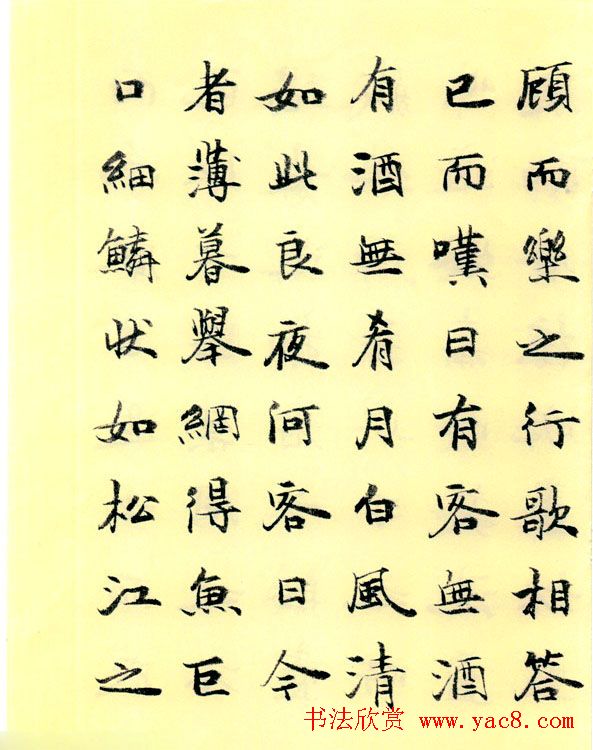 顾而樂之行歌相答
已而嘆曰有客無酒
有酒無肴月白風清
如此良夜何客曰今
者薄暮舉網得魚巨
口細鱗状如松江之
书法欣赏 www.yac8.com